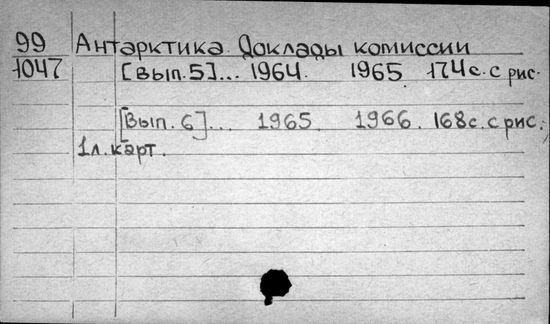 99 Антарктика. Доклады комиссии
1047 [Вып. 5]... 1964. 1965 174 с. с рис.
[Вып. 6]... 1965. 1966. 168 с. с рис.;
1 л. карт.